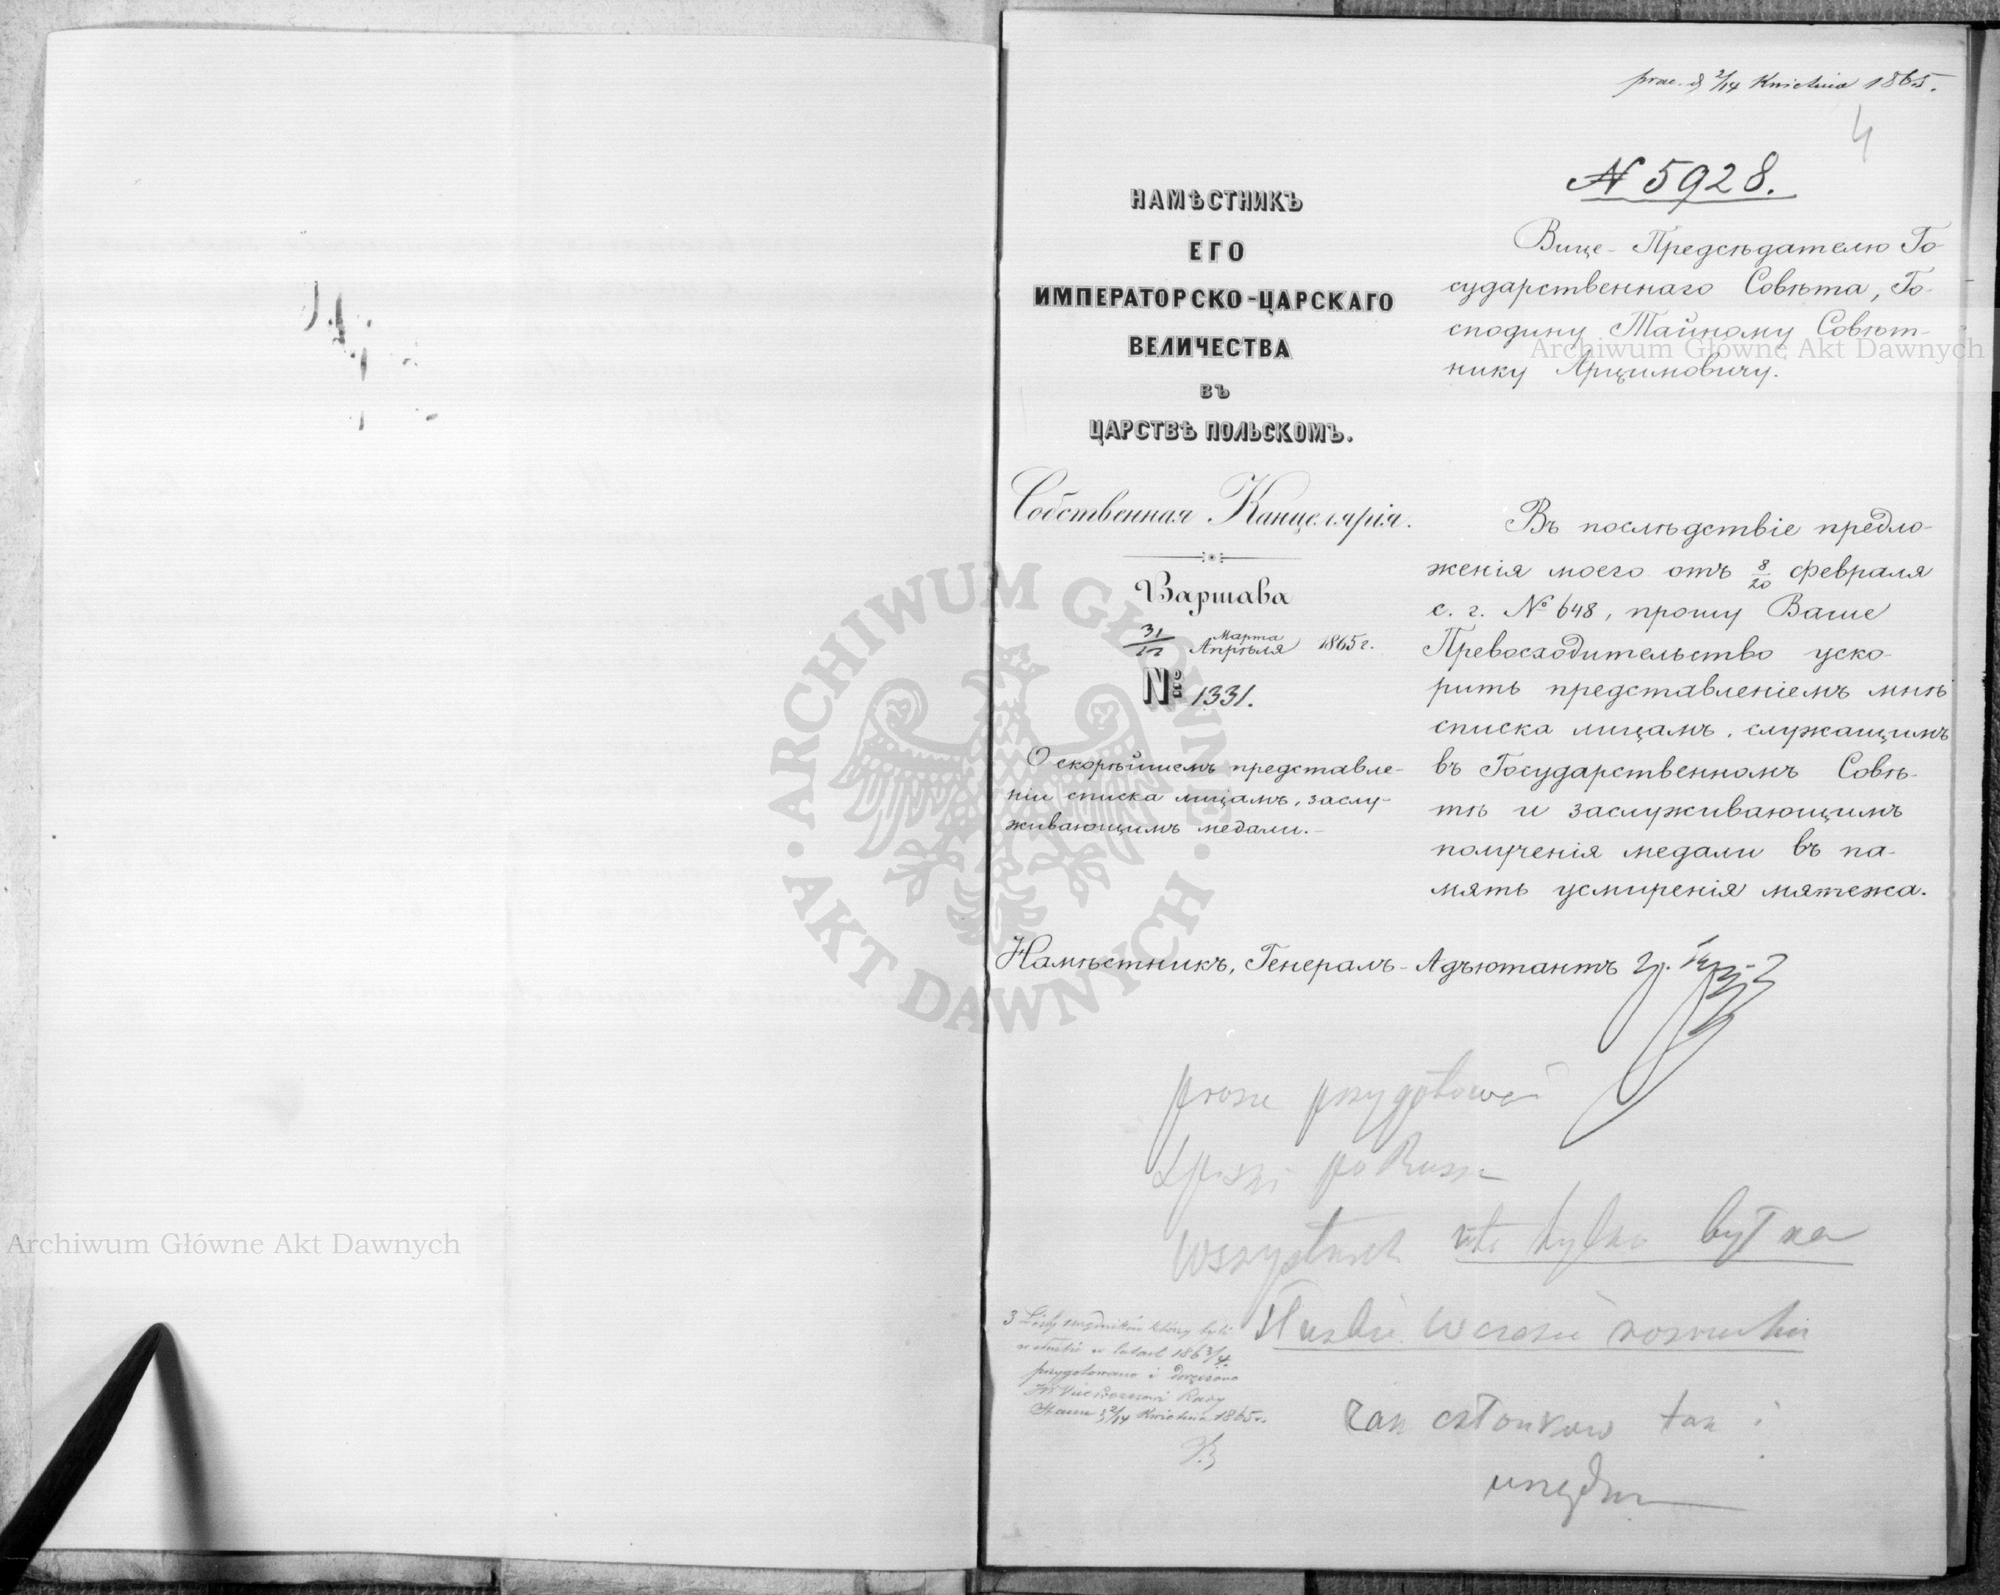 prae. d 2/14 Kwietnia 1865.
4
N 5928.
НАМѢСТНИКЪ
ЕГО
ИМПЕРАТОРСКО-ЦАРСКАГО
ВЕЛИЧЕСТВА
ВЪ
ЦАРСТВѢ ПОЛЬСКОМЪ.
Собственная Канцелярія.
Варшава
31/12 Марта/Апрѣля 1865 г.
№ 1331.
О скорѣйшемъ представле-
ніи списка лицамъ, заслу-
живающимъ медали.-
Вице-Предсѣдателю Го-
сударственнаго Совѣта, Го-
сподину Тайному Совѣт-
нику Арцимовичу.
Въ послѣдствіе предло-
женія моего отъ 8/20 февраля
с. г. № 648, прошу Ваше
Превосходительство уско-
рить представленіемъ мнѣ
списка лицамъ, служащимъ
въ Государственномъ Совѣ-
тѣ и заслуживающимъ
полученія медали въ па-
мять усмиренія мятежа.
Намѣстникъ, Генералъ-Адъютантъ
prosze przygotować
spiski po Russk
wszystkich kto tylko był na
służbie w czasie rozruchu
zak członkow tak i
urzędn
3 Listy urzędników którzy byli
w służbie w latach 1863/4.
przygotowano i doręczono
JW Viceprezesowi Rady
Stanu d 2/14 Kwietnia 1865 r.
Archiwum Główne Akt Dawnych
Archiwum Główne Akt Dawnych
ARCHIWUM GŁÓWNE
AKT DAWNYCH